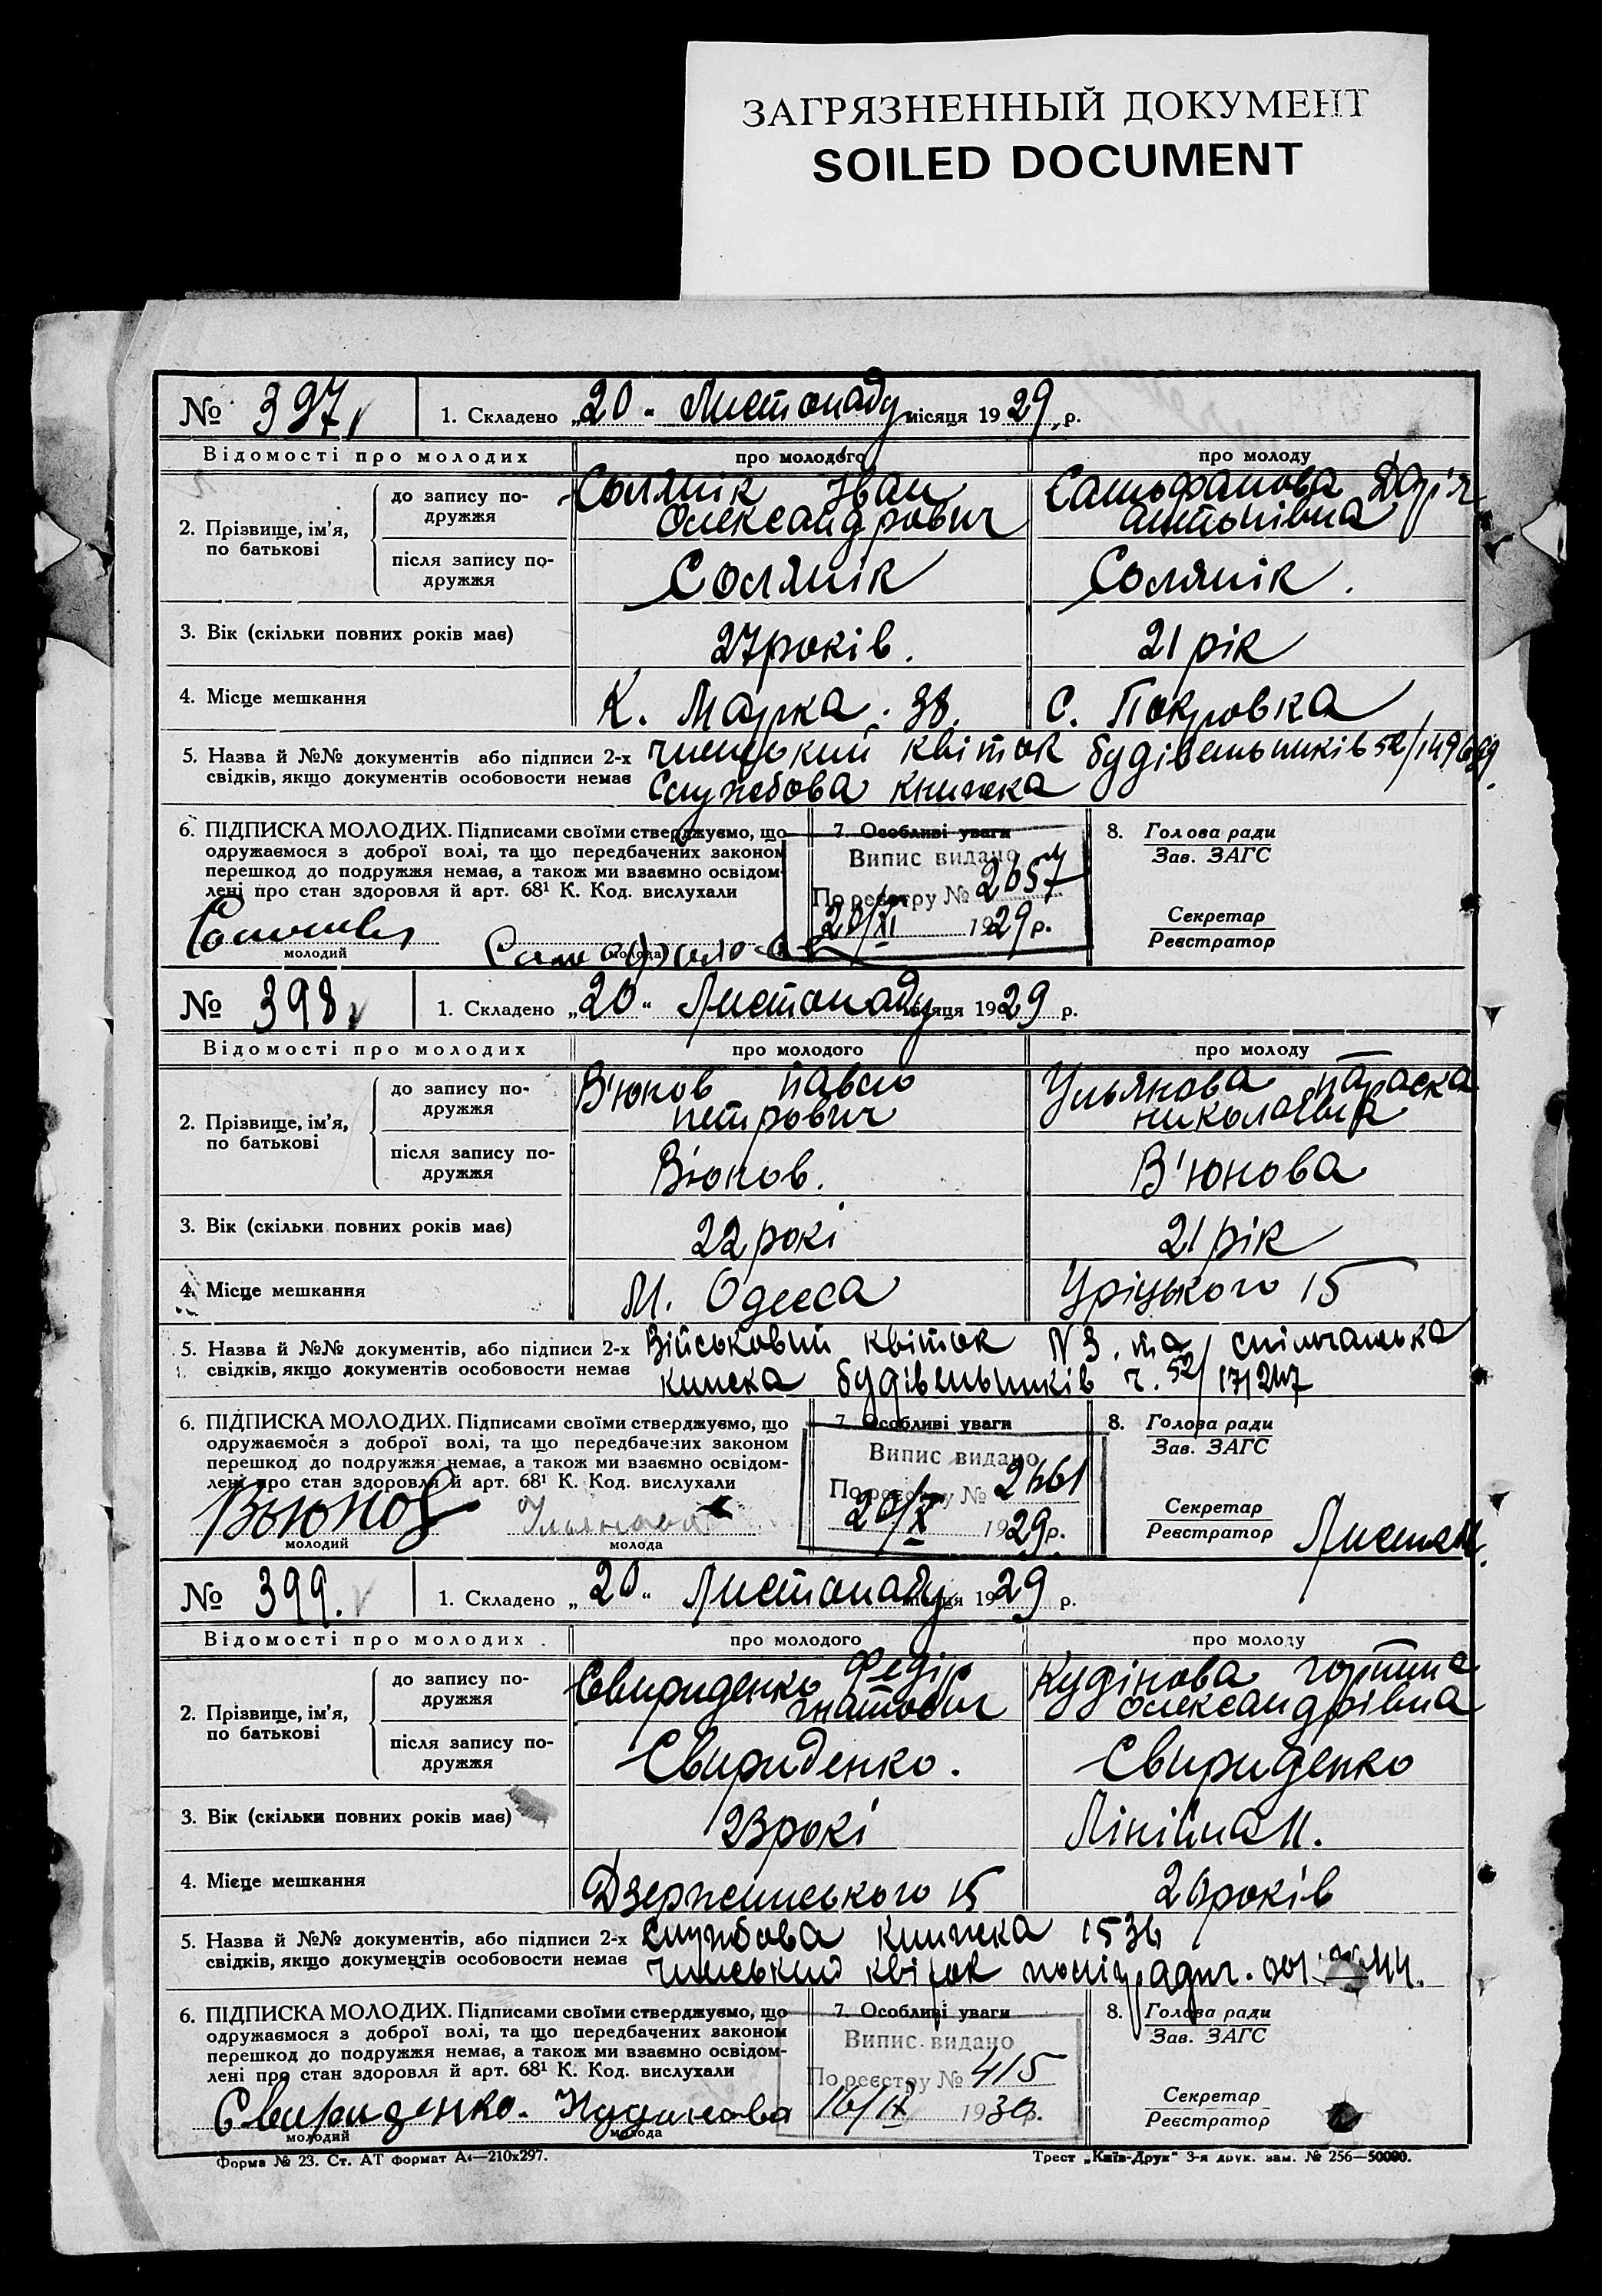 ЗАГРЯЗНЕННЫЙ ДОКУМЕНТ
SOILED DOCUMENT
№ 397
1. Складено „20“ Листопаду місяця 1929 р.
Відомості про молодих
про молодого
про молоду
2. Прізвище, ім’я, по батькові
до запису подружжя
Солянік Іван
Олександрович
Дарія
Антонівна
після запису подружжя
Солянік
Солянік.
3. Вік (скільки повних років має)
27 років.
21 рік
4. Місце мешкання
К. Маркса. 38.
С. Покровка
5. Назва й №№ документів або підписи 2-х
свідків, якщо документів особовости немає
членський квіток будівельників
Службова книжка
6. ПІДПИСКА МОЛОДИХ. Підписами своїми стверджуємо, що
одружаємося з доброї волі, та що передбачених законом
перешкод до подружжя немає, а також ми взаємно освідом-
лені про стан здоровля й арт. 68¹ К. Код. вислухали
молодий
молода
7. Особливі уваги
Випис видано
По реєстру № 2657
20/XI 1929 р.
8. Голова ради
Зав. ЗАГС
Секретар
Реєстратор
№ 398
1. Складено „20“ Листопаду місяця 1929 р.
Відомості про молодих
про молодого
про молоду
2. Прізвище, ім’я, по батькові
до запису подружжя
В'юнов Павло
Петрович
Ульянова Параска
Николаевна
після запису подружжя
В'юнов.
В'юнова
3. Вік (скільки повних років має)
22 рокі
21 рік
4. Місце мешкання
м. Одеса
Уріцького 15
5. Назва й №№ документів, або підписи 2-х
свідків, якщо документів особовости немає
Військовий квіток N 3. та спілчанська
книжка будівельників ч. 52/171247
6. ПІДПИСКА МОЛОДИХ. Підписами своїми стверджуємо, що
одружаємося з доброї волі, та що передбачених законом
перешкод до подружжя немає, а також ми взаємно освідом-
лені про стан здоровля й арт. 68¹ К. Код. вислухали
Вьюнов
молодий
Ульянова
молода
7. Особливі уваги
Випис видано
По реєстру № 2661
1929 р.
8. Голова ради
Зав. ЗАГС
Секретар
Реєстратор
№ 399.
1. Складено „20“ Листопаду місяця 1929 р.
Відомості про молодих
про молодого
про молоду
2. Прізвище, ім’я, по батькові
до запису подружжя
Свириденко Федір
Гнатович
Кудінова Горпина
Олександрівна
після запису подружжя
Свириденко.
Свириденко
3. Вік (скільки повних років має)
23 рокі
Лінійна 11.
4. Місце мешкання
Дзержинського 15
26 років
5. Назва й №№ документів, або підписи 2-х
свідків, якщо документів особовости немає
службова книжка 1536
членський квіток
6. ПІДПИСКА МОЛОДИХ. Підписами своїми стверджуємо, що
одружаємося з доброї волі, та що передбачених законом
перешкод до подружжя немає, а також ми взаємно освідом-
лені про стан здоровля й арт. 68¹ К. Код. вислухали
Свириденко.
молодий
Кудинова
молода
7. Особливі уваги
Випис видано
По реєстру № 415
16/IX 1930 р.
8. Голова ради
Зав. ЗАГС
Секретар
Реєстратор
Форма № 23. Ст. АТ формат А4—210x297.
Трест „Київ-Друк“ 3-я друк. зам. № 256—50000.